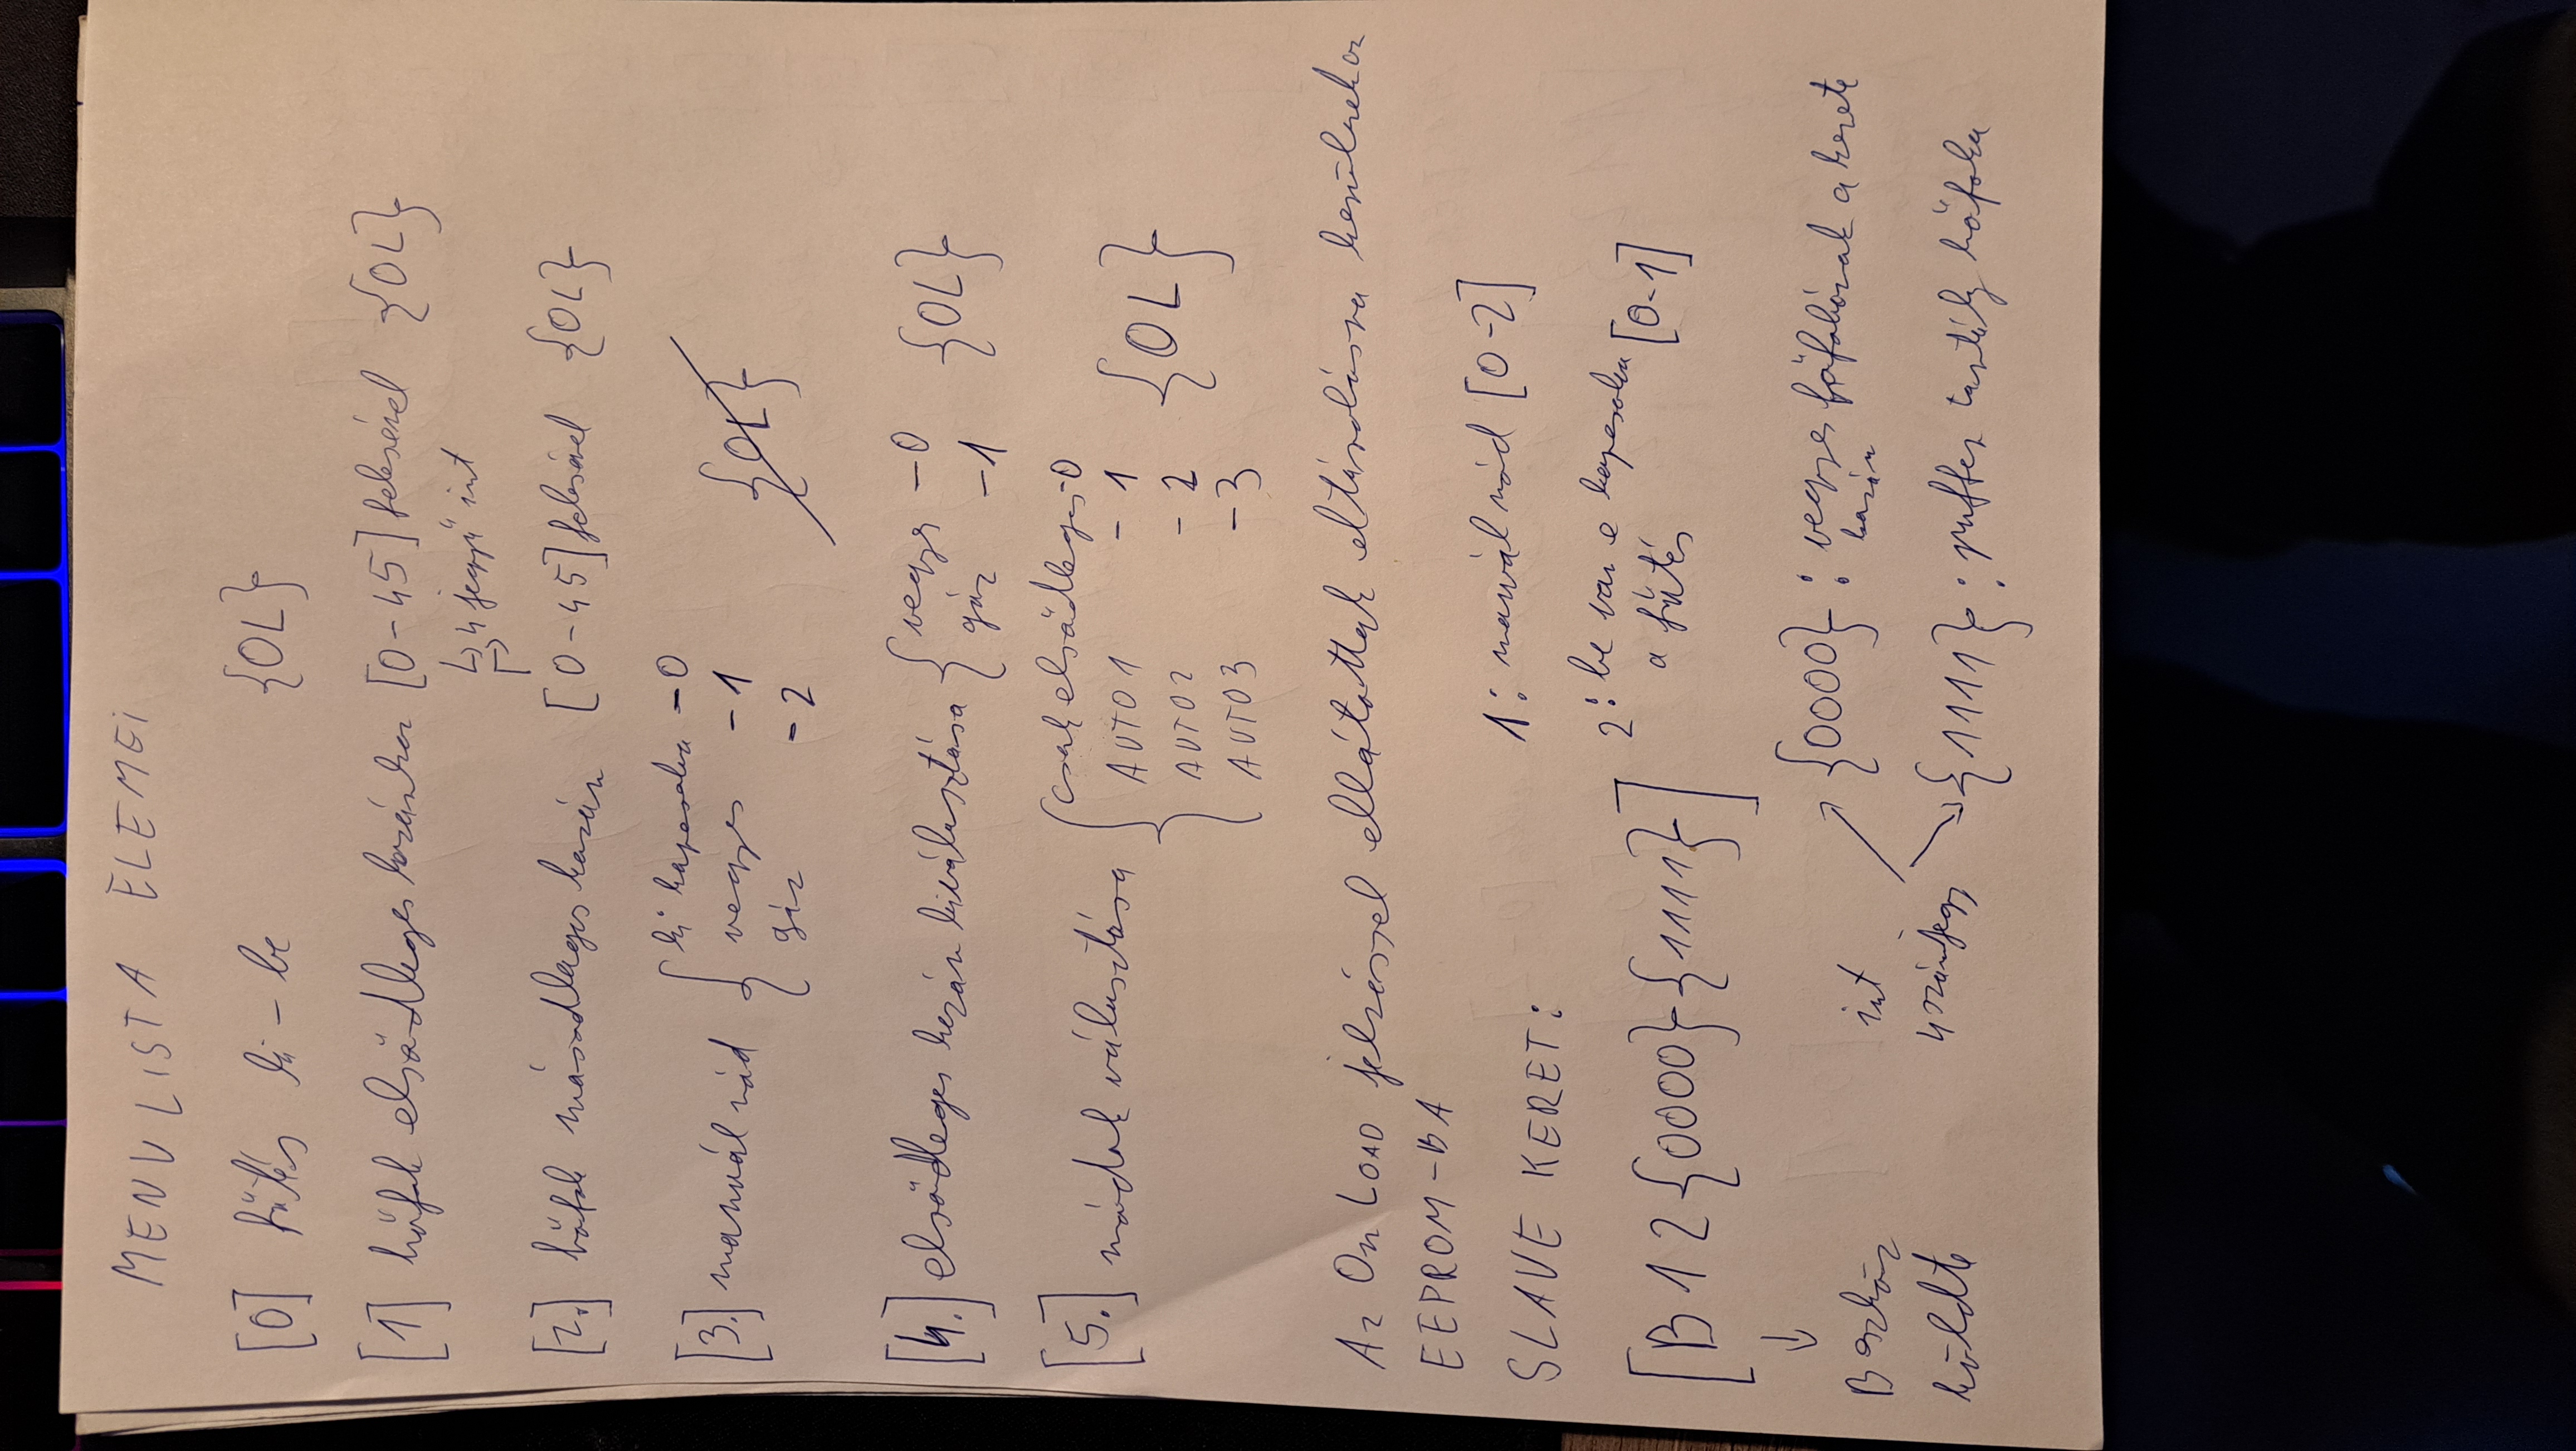 MENU LISTA ELEMEI
[0] fűtés ki - be {OL}
[1] hőfok elsődleges kazánhoz [0-45] feléséel {OL}
↳ 4 jegyű int
[2.] hőfok másodlagos kazán [0-45] felésével {OL}
[3.] manuál mód { ki kapcsolva -0
vegyes -1
gáz -2
{OL}
[4.] elsődleges kazán kiválasztása { vegyes -0
gáz -1
{OL}
[5.] módok választása { csak elsődleges -0
AUTO 1 - 1
AUTO2 - 2
AUTO 3 - 3
{OL}
Az On LOAD jelzéssel ellátottak eltárolásra kerülnek az
EEPROM-BA
SLAVE KERET:
[B 1 2 {0000} {1111}]
1: manuál mód [0-2]
2: be van e kapcsolva [0-1]
a fűtés
↓
B eszköz
küldte
int
4 számjegy
{0000}: vegyes hőfokának a kerete
kazán
{1111}: puffer tartály hőfoka